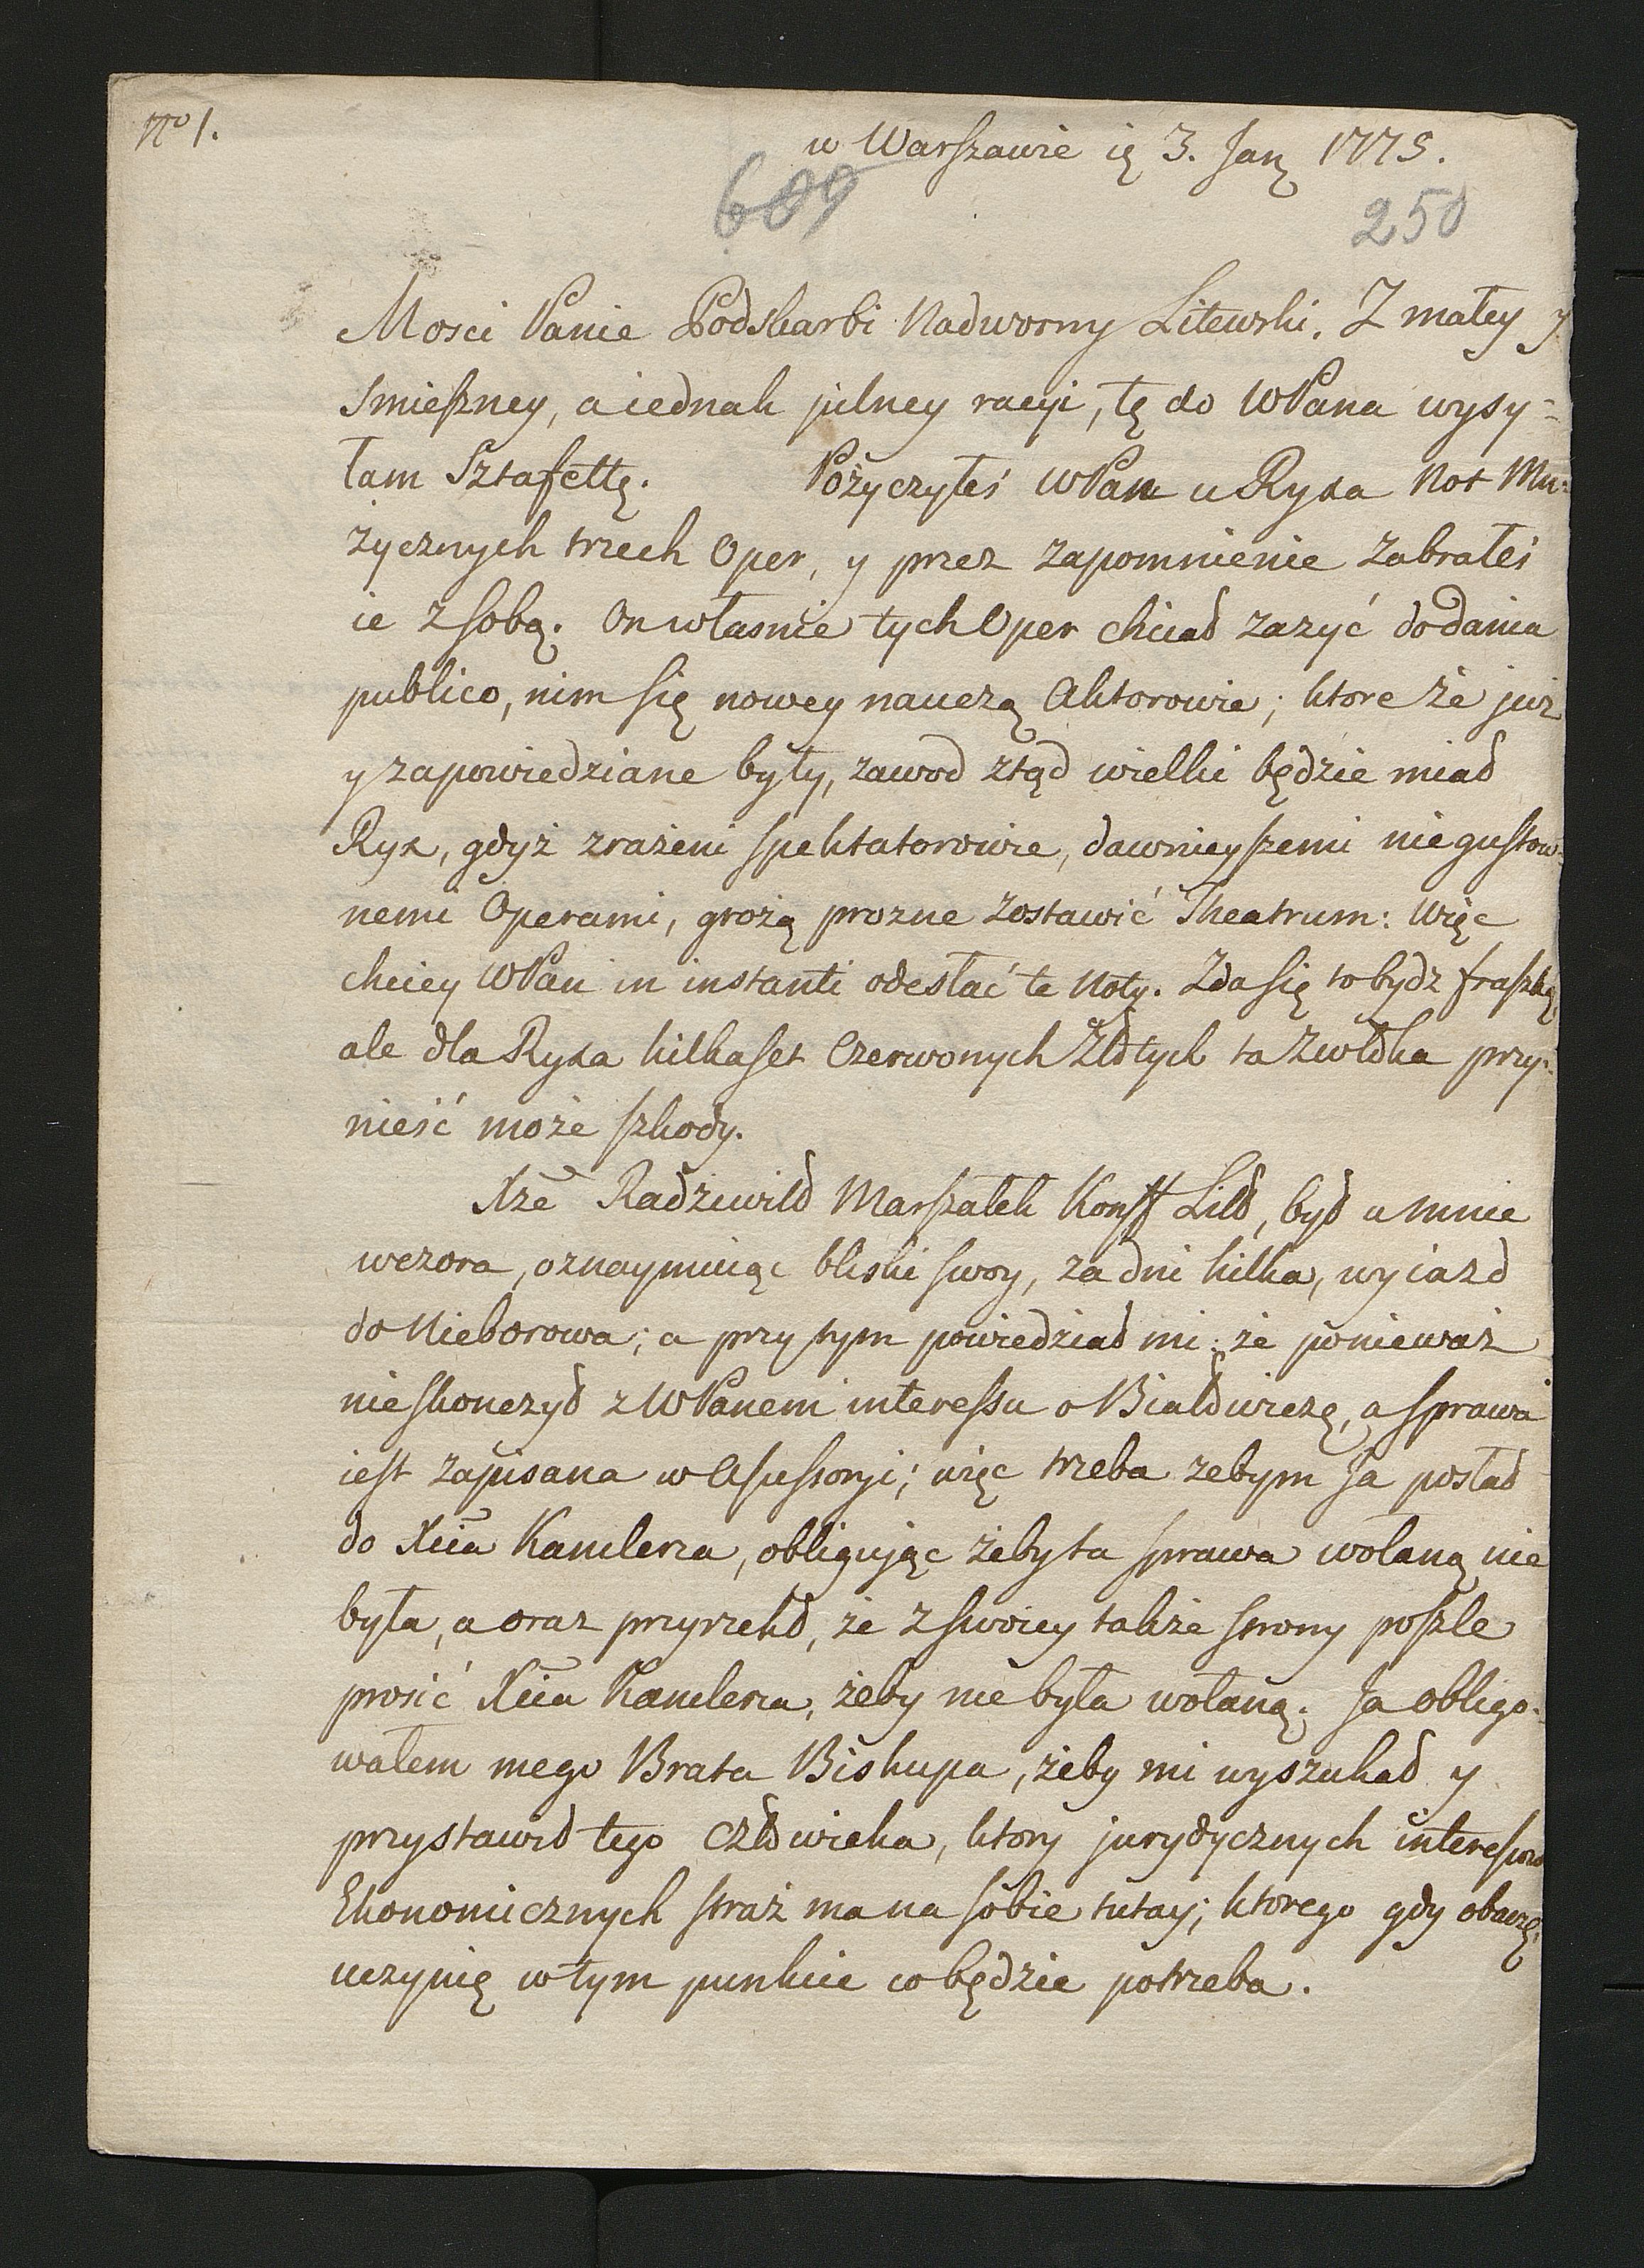 No 1.
w Warszawie ię 3. Janų 1775.
609
250
Mosci Panie Podskarbi Nadworny Litewski. Z małey y
smieszney, a iednak pilney racyi, tę do WPana wysy=
łam Sztafettę. Pożyczyłeś WPan u Ryxa Not Mu=
zycznych trzech Oper, y przez zapomnienie zabrałeś
ie z sobą. On własnie tych Oper chciał zazyć do dania
publico, nim się nowey nauczą Aktorowie; ktore że już
y zapowiedziane były, zawod ztąd wielki będzie miał
Ryx, gdyż zrażeni spektatorowie, dawnieyszemi niegustow=
nemi Operami, grożą prozne zostawić Theatrum: Więc
chciey WPan in instanti odesłać te Noty. Zda się to bydz fraszką,
ale dla Ryxa kilkaset Czerwonych Złotych ta zwłoka przy=
nieść może szkody.
Xże Radziwiłł Marszałek Konff Litt, był u mnie
wczora, oznaymuiąc bliski swoy, za dni kilka, wyiazd
do Nieborowa; a przy tym powiedział mi: że ponieważ
nieskonczył z WPanem interessu o Białowieżę, a sprawa
iest zapisana w Assessoryi; więc trzeba zebym Ja posłał
do Xcia Kanclerza, obliguiąc żeby ta sprawa wołaną nie
była, a oraz przyrzekł, że z swoiey także strony poszle
prosić Xcia Kanclerza, żeby nie była wołaną. Ja obligo=
wałem mego Brata Biskupa, żeby mi wyszukał y
przystawił tego człowieka, ktory jurydycznych interessow
Ekonomicznych straż ma na sobie tutay; ktorego gdy obaczę,
uczynię w tym punkcie co będzie potrzeba.